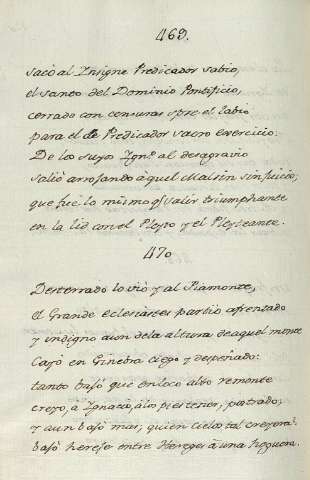 469.
sacó al Insigne Predicador sabio,
el santo del Dominio Pontificio,
cerrado con censuras spre el labio
para el de Predicador sacro exercicio.
De los suyos Ign.º al desagravio
salió arrostrando áquel Malsin sin juicio,
que fue lo mismo q.e salir triumphante
en la lid con el Pleyto y el Pleyteante.
470
Desterrado lo vió yá al Piamonte,
el Grande eclesiastes partió afrentado
y indigno aun dela altura deaquel monte
Cayó en Ginebra ciego y despeñado:
tanto bajó que enloco altro remonte
creyo, á Ignacio, álos pies tener, postrado;
y aun bajó mas, quien Cielos tal creyera!
bajó hereje entre Hereges á una hoguera.